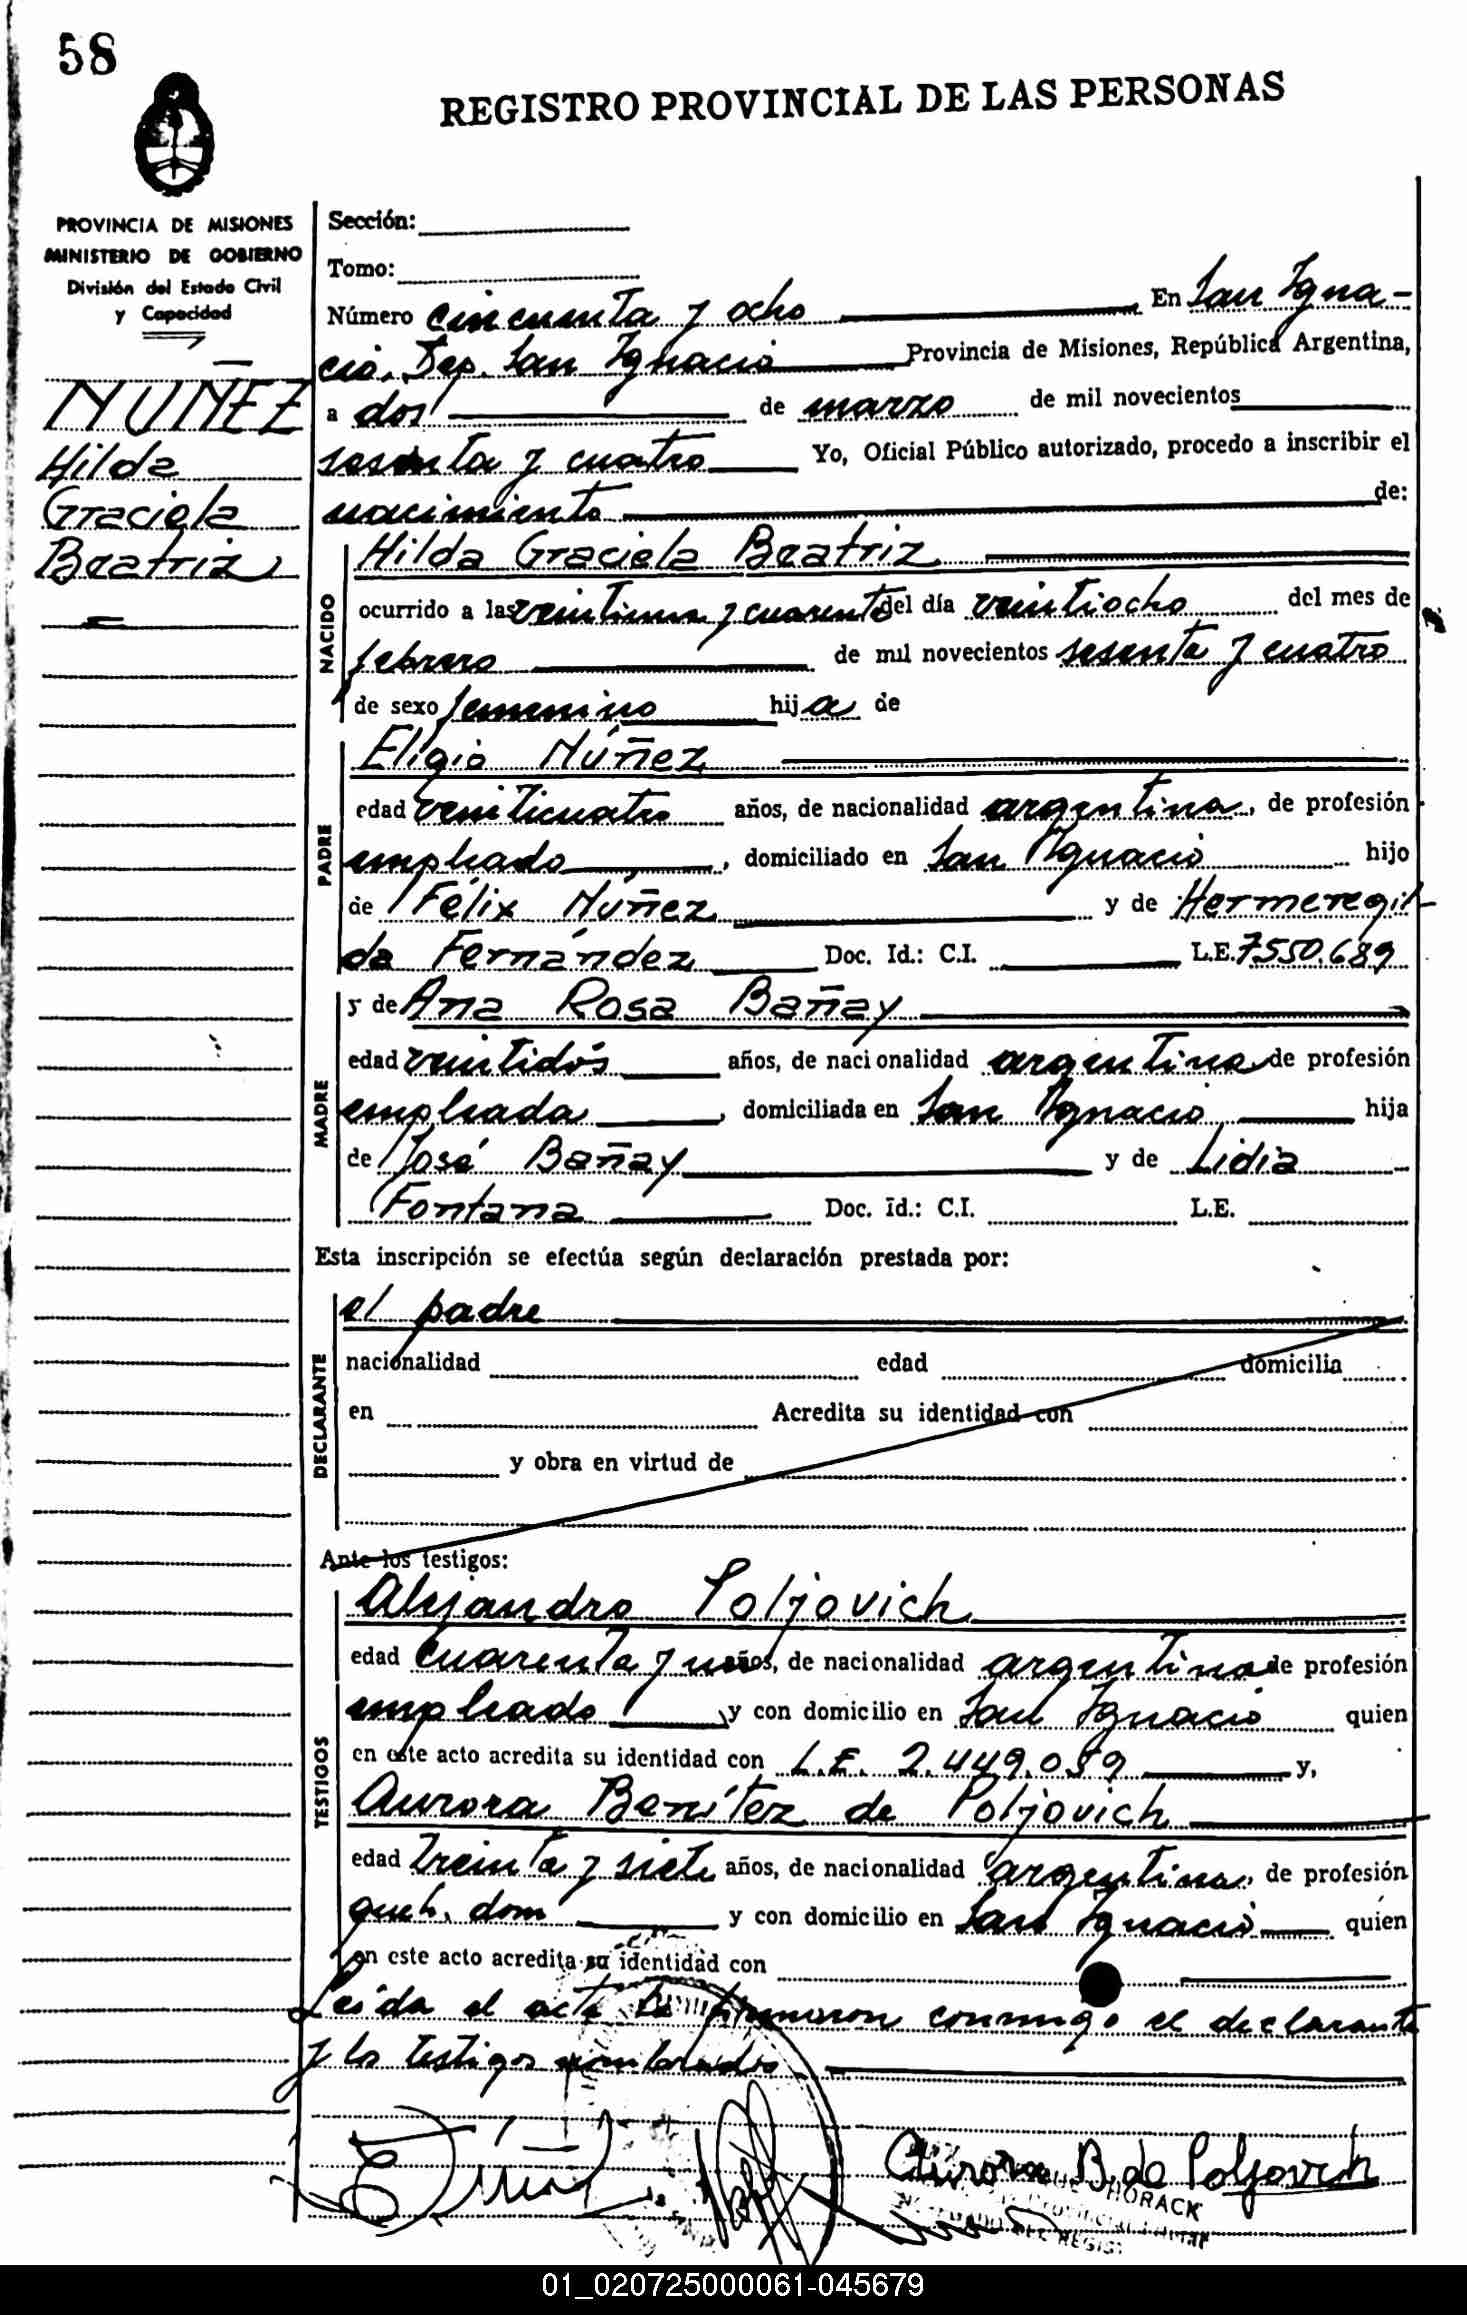 58
REGISTRO PROVINCIAL DE LAS PERSONAS
PROVINCIA DE MISIONES
MINISTERIO DE GOBIERNO
División del Estado Civil
y Capacidad
NUÑEZ
Hilda
Graciela
Beatriz
Sección:
Tomo:
Número cincuenta y ocho En San Igna-
cio, Dep. San Ignacio Provincia de Misiones, República Argentina,
a dos de marzo de mil novecientos
sesenta y cuatro Yo, Oficial Público autorizado, procedo a inscribir el
nacimiento de:
NACIDO
Hilda Graciela Beatriz
ocurrido a las veintiuna y cuarenta del día veintiocho del mes de
febrero de mil novecientos sesenta y cuatro
de sexo femenino hija de
PADRE
Eligio Núñez
edad veinticuatro años, de nacionalidad argentina, de profesión
empleado, domiciliado en San Ignacio hijo
de Félix Núñez y de Hermeregil-
da Fernández Doc. Id.: C.I. L.E. 7550.689
MADRE
y de Ana Rosa Bañay
edad veintidós años, de nacionalidad argentina de profesión
empleada, domiciliada en San Ignacio hija
de José Bañay y de Lidia
Fontana Doc. Id.: C.I. L.E.
Esta inscripción se efectúa según declaración prestada por:
DECLARANTE
el padre
nacionalidad edad domicilia
en Acredita su identidad con
y obra en virtud de
Ante los testigos:
TESTIGOS
Alejandro Poljovich
edad cuarenta y un años, de nacionalidad argentina de profesión
empleado y con domicilio en San Ignacio quien
en este acto acredita su identidad con L.E. 2.449.059 y,
Aurora Benítez de Poljovich
edad treinta y siete años, de nacionalidad argentina, de profesión
queh. dom y con domicilio en San Ignacio quien
en este acto acredita su identidad con
Leída el acta la firmaron conmigo el declarante
y los testigos nombrados
Aurora B. de Poljovich
HORACK
01_020725000061-045679